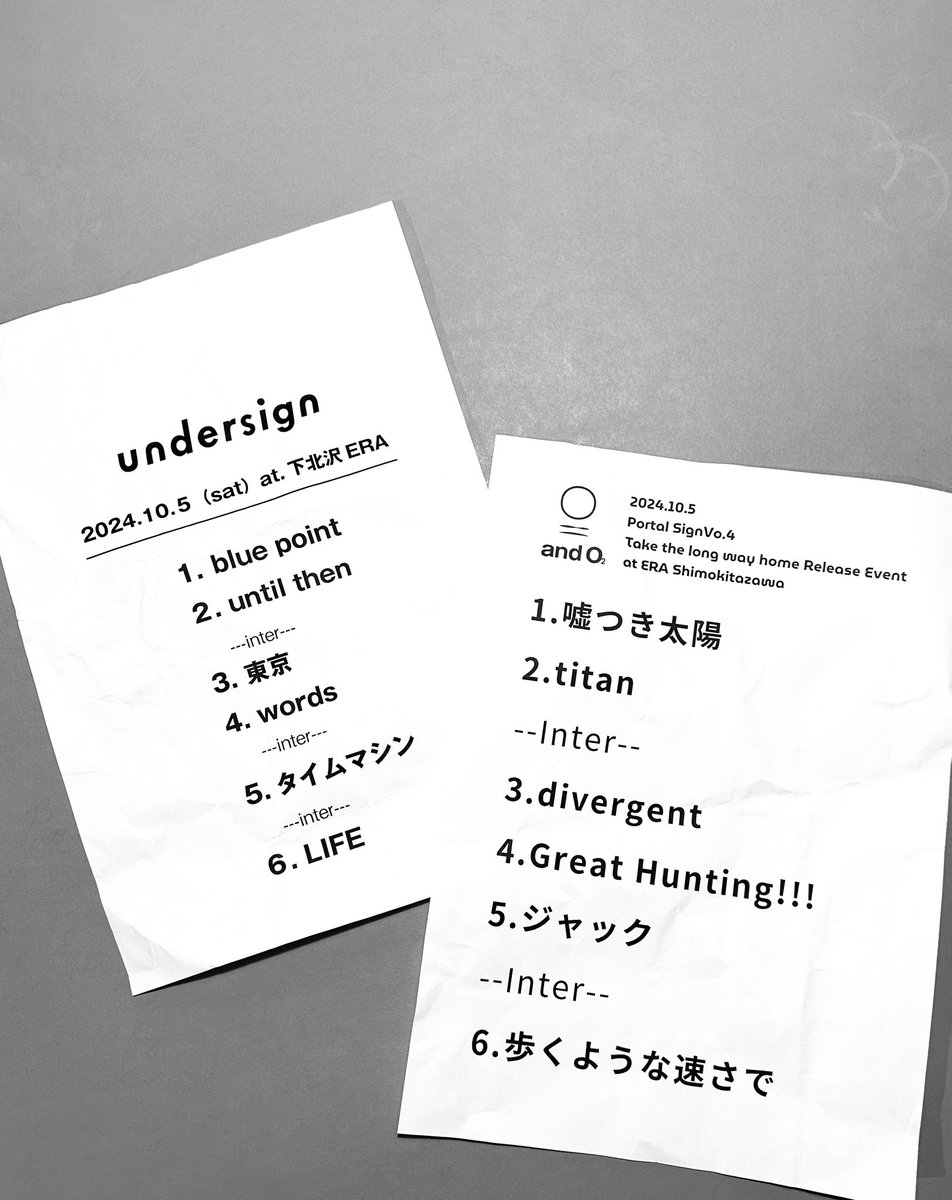 undersign
2024.10.5（sat）at.下北沢 ERA
1. blue point
2. until then
---inter---
3. 東京
4. words
---inter---
5. タイムマシン
---inter---
6. LIFE
and O₂
2024.10.5
Portal SignVo.4
Take the long way home Release Event
at ERA Shimokitazawa
1.嘘つき太陽
2.titan
--Inter--
3.divergent
4.Great Hunting!!!
5.ジャック
--Inter--
6.歩くような速さで